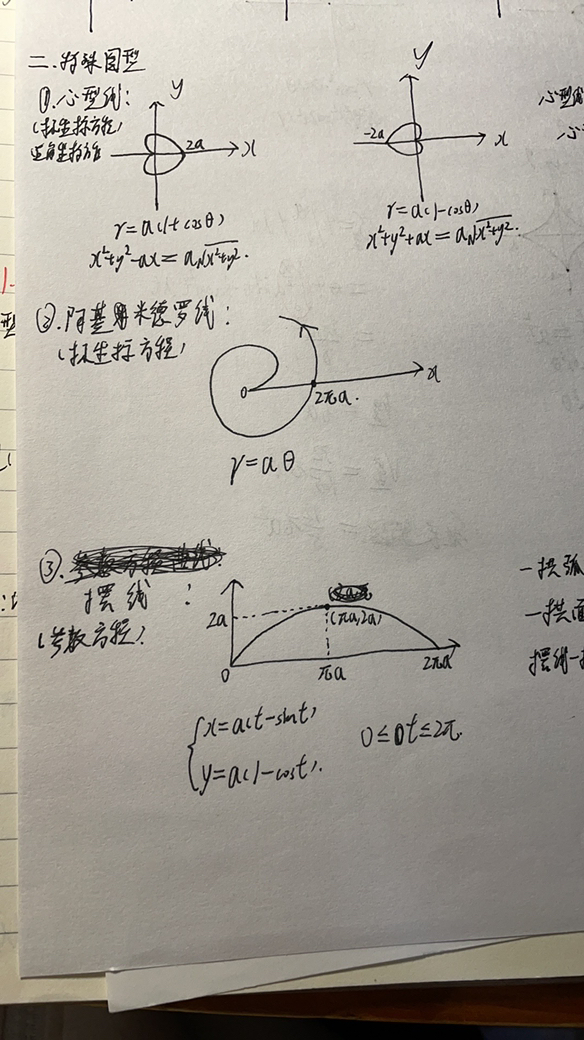 二.特殊图型
①.心型线:
(极坐标方程)
直角坐标方程
y
2a
x
r=a(1+cosθ)
x²+y²-ax=a√x²+y².
y
-2a
x
r=a(1-cosθ)
x²+y²+ax=a√x²+y².
心型线
②.阿基米德罗线:
(极坐标方程)
0
2πa.
x
r=aθ
③.
摆线:
(参数方程)
2a
(πa,2a)
0
πa
2πa
{x=a(t-sint)
y=a(1-cost).
0≤t≤2π.
一拱弧
一拱面
摆线一拱